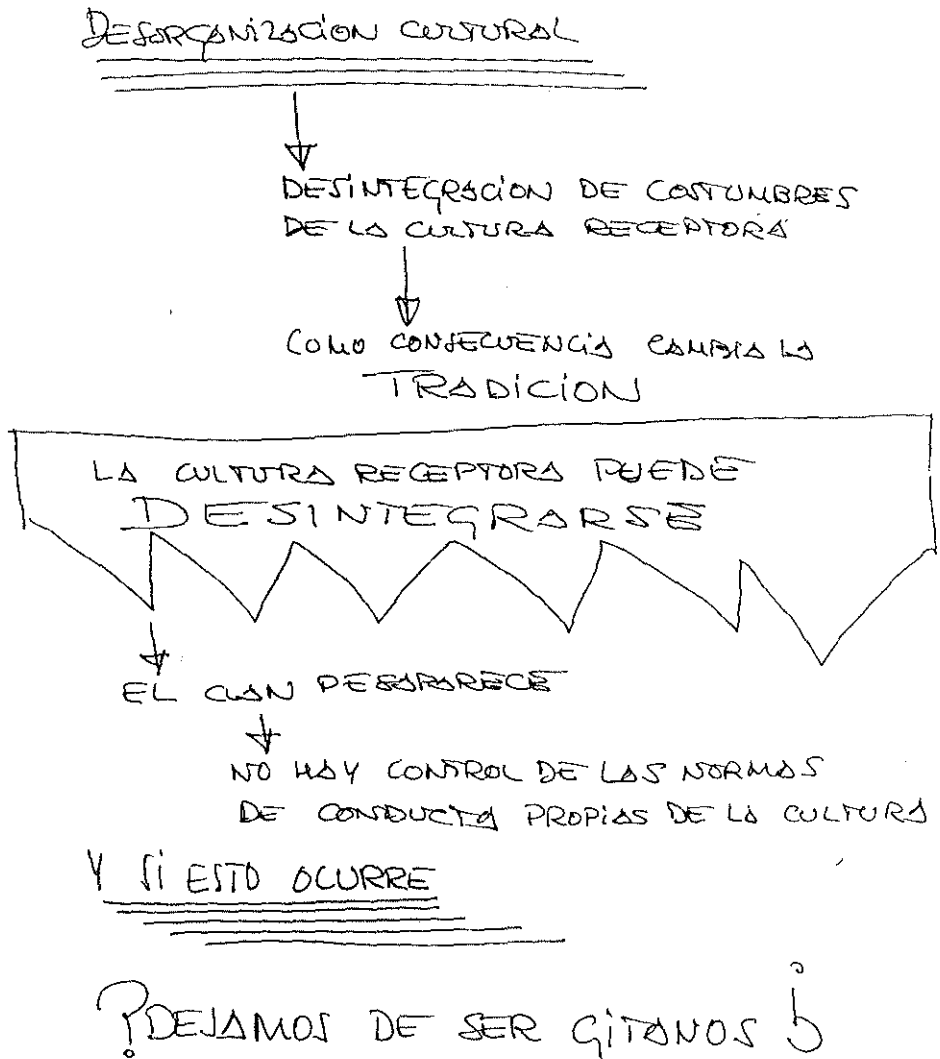 DESORGANIZACION CULTURAL
DESINTEGRACION DE COSTUMBRES
DE LA CULTURA RECEPTORA
COMO CONSECUENCIA CAMBIA LA
TRADICION
LA CULTURA RECEPTORA PUEDE
DESINTEGRARSE
EL CLAN DESAPARECE
NO HAY CONTROL DE LAS NORMAS
DE CONDUCTA PROPIAS DE LA CULTURA
Y SI ESTO OCURRE
?DEJAMOS DE SER GITANOS ¿